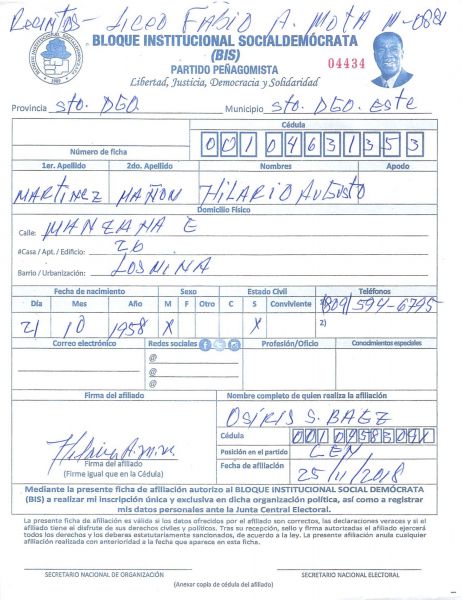 Recintos - Liceo Fabio A. Mota
BLOQUE INSTITUCIONAL SOCIALDEMÓCRATA
(BIS)
04434
PARTIDO PEÑAGOMISTA
Libertad, Justicia, Democracia y Solidaridad
Provincia Sto. DGO Municipio Sto. DGO. Este
Cédula
Número de ficha 001 0463135 3
1er. Apellido 2do. Apellido Nombres Apodo
MARTINEZ MAÑON HILARIO AUGUSTO
Domicilio Físico
Calle: MANZANA E
#Casa / Apt. / Edificio: 26
Barrio / Urbanización: LOS MINA
Fecha de nacimiento Sexo Estado Civil Teléfonos
Día Mes Año M F Otro C S Conviviente 1) 809/594-6795
21 10 1958 X X 2)
Correo electrónico Redes sociales Profesión/Oficio Conocimientos especiales
@
@
@
Firma del afiliado Nombre completo de quien realiza la afiliación
OSIRIS S. BAEZ
Cédula
Posición en el partido
Firma del afiliado
(Firma igual que en la Cédula)
Fecha de afiliación 25/11/2018
Mediante la presente ficha de afiliación autorizo al BLOQUE INSTITUCIONAL SOCIAL DEMÓCRATA
(BIS) a realizar mi inscripción única y exclusiva en dicha organización política, así como a registrar
mis datos personales ante la Junta Central Electoral.
La presente ficha de afiliación es válida si los datos ofrecidos por el afiliado son correctos, las declaraciones veraces y si el
afiliado tiene el disfrute de sus derechos civiles y políticos. Tras su recepción, sello y firma autorizadas el afiliado ejercerá
todos los derechos y los deberes estatutarios sancionados, de acuerdo a la ley. La presente afiliación anula cualquier
afiliación realizada con anterioridad a la fecha que aparece en esta ficha.
SECRETARIO NACIONAL DE ORGANIZACIÓN SECRETARIO NACIONAL ELECTORAL
(Anexar copia de cédula del afiliado)